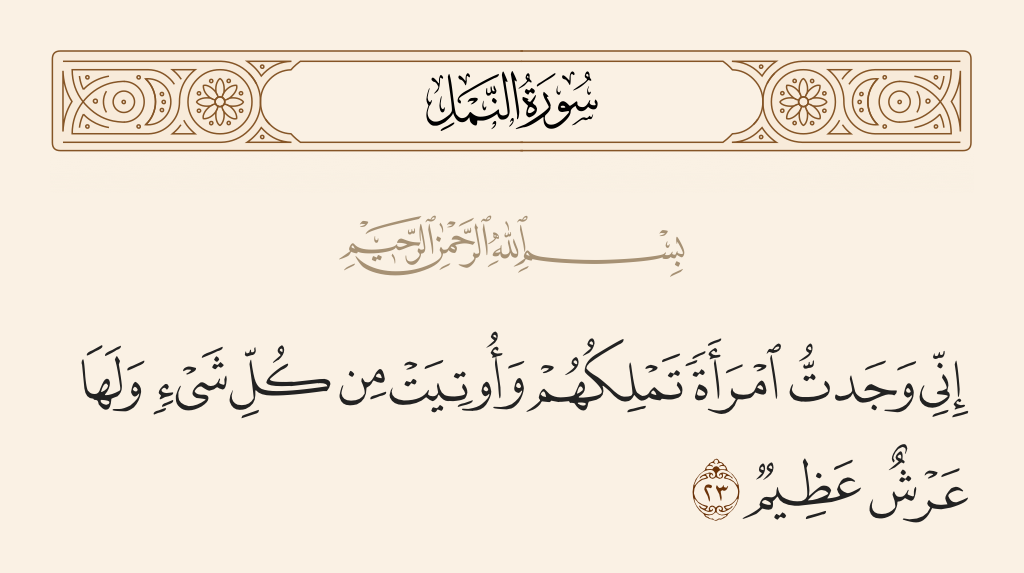 سُورَةُ النَّمْلِ
بِسْمِ ٱللَّهِ ٱلرَّحْمَٰنِ ٱلرَّحِيمِ
إِنِّى وَجَدتُّ ٱمْرَأَةً تَمْلِكُهُمْ وَأُوتِيَتْ مِن كُلِّ شَىْءٍ وَلَهَا
عَرْشٌ عَظِيمٌ ٢٣